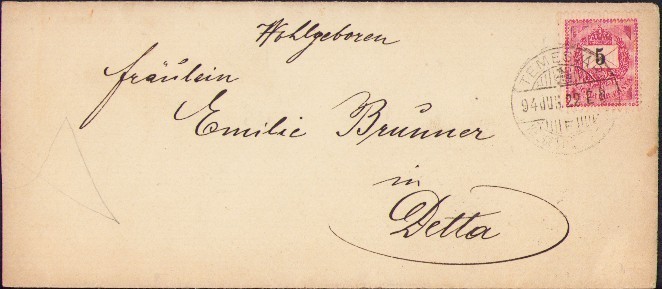 Wohlgeboren
Fräulein
Emilie Brunner
in
Detta
5
94 JUN. 22